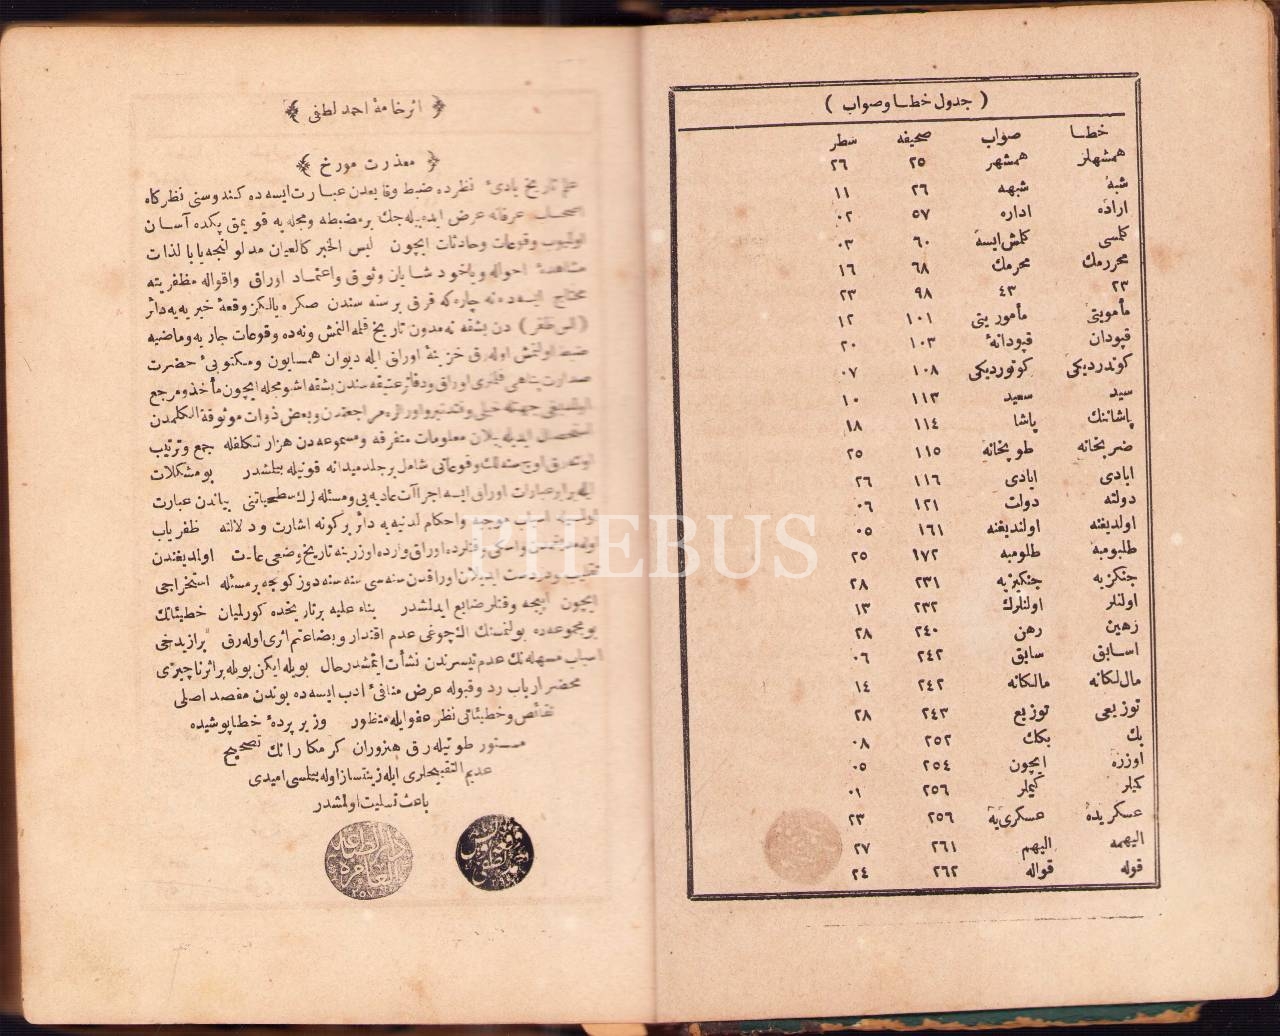 ( جدول خطا وصواب )
خطا صواب صحیفه سطر
همشهلر همشهر ٢٥ ٢٦
شبة شبهه ٢٦ ١١
اراده اداره ٥٧ ٠٢
كلسى كلمش ايسه ٦٠ ٠٣
محررمك محرمك ٦٨ ١٦
٢٣ ٤٣ ٩٨ ٢٣
مأمويتى مأموريتى ١٠١ ١٢
قپودان قپودانۀ ١٠٣ ٢٠
كوندرديكى كوتورديكى ١٠٨ ٠٧
سيد سعيد ١١٣ ١٠
پاشانك پاشا ١١٤ ١٨
ضربخانه طوپخانه ١١٥ ٢٥
ايادى ايادى ١١٦ ٢٦
دولته دولت ١٢١ ٠٦
اولديغنه اولنديغنه ١٦١ ٠٥
طلبومبه طلومبه ١٧٢ ٢٥
جنكزيه جنكيزيه ٢٣١ ٢٨
اولنلر اولنلرك ٢٣٢ ١٣
زهين رهن ٢٤٠ ٢٨
اسابق سابق ٢٤٢ ٠٦
مال لكانه مالكانه ٢٤٢ ١٤
توزيعى توزيع ٢٤٣ ٢٨
بك بكك ٢٥٢ ٠٨
اوزره ايچون ٢٥٤ ٠٥
كيلر كيملر ٢٥٦ ٠١
عسكريده عسكرى يه ٢٥٦ ٢٣
اليهمه اليهم ٢٦١ ٢٧
قوله قواله ٢٦٢ ٢٤
اثر خامۀ احمد لطفى
معذرت مورخ
علم تاريخ يادئ نظرده ضبط وقايعدن عبارت ايسه ده كندوسنى نظركاه
عرفانه عرض ايديله جك بر مضبطه ومجله يه قويمق پكده آسان
اولميوب وقوعات وحادثات ايچون ليس الخبر كالعيان مدلولنجه يا بالذات
مشاهدۀ احواله وياخود شايان وثوق واعتماد اوراق واقواله مظفريته
محتاج ايسه ده نه چاره كه قرق بر سنه سندن صكره يالكز وقعۀ خيريه يه دائر
(اس ظفر) دن بشقه نه مدون تاريخ قلمه النمش ونه ده وقوعات جاريه وماضيه
ضبط اولنمش اوله رق خزينۀ اوراق ايله ديوان همايون ومكتوبئ حضرت
صدارتپناهى قلملرى اوراق ودفاتر عتيقه سندن بشقه اشو مجله ايچون مأخذ ومرجع
اولمديغى جهتله خيلى وقتدنبرو اورالره مراجعتدن وبعض ذوات موثوقة الكلمدن
استحصال ايديله بيلان معلومات متفرقه ومسموعه دن هزار تكلفله جمع وترتيب
اوچ سنه لك وقوعاتى شامل بر جلد ميدانه قونيله بيلشدر بو مشكلات
ايله برابر عبارات اوراق ايسه اجراآت عاديه يى ومسئله لرك سطحياتنى بياندن عبارت
اسباب موجبه واحكام لدنيه يه دائر بركونه اشارت ودلالته ظفرياب
اوراق وارده اوزرينه تاريخ وضعى عادت اولمديغندن
اوراقدن سنه سى سنه سنه دوز كونجه بر مسئله استخراجى
ايچون ايپجه وقتلر ضايع ايدلمشدر بناء عليه بر تاريخده كورلميان خطيئاتك
بو مجموعه ده بولنمسنك الك چوغى عدم اقتدار وبضاعتم اثرى اوله رق برازيدخى
اسباب مسهله نك عدم تيسرندن نشأت ايتمشدر حال بويله ايكن بويله بر اثر ناچيزى
محضر ارباب رد وقبوله عرض منافئ ادب ايسه ده بوندن مقصد اصلى
نقائص وخطيئاتى نظر عفو ايله منظور وزير پردۀ خطاپوشيده
مستور طوتيله رق هنروران كرمكارانك تصحيح
عديم التقبيحلرى ايله زينتساز اوله بيلمسى اميدى
باعث تسليت اولمشدر
دار الطباعة العامره
PHEBUS